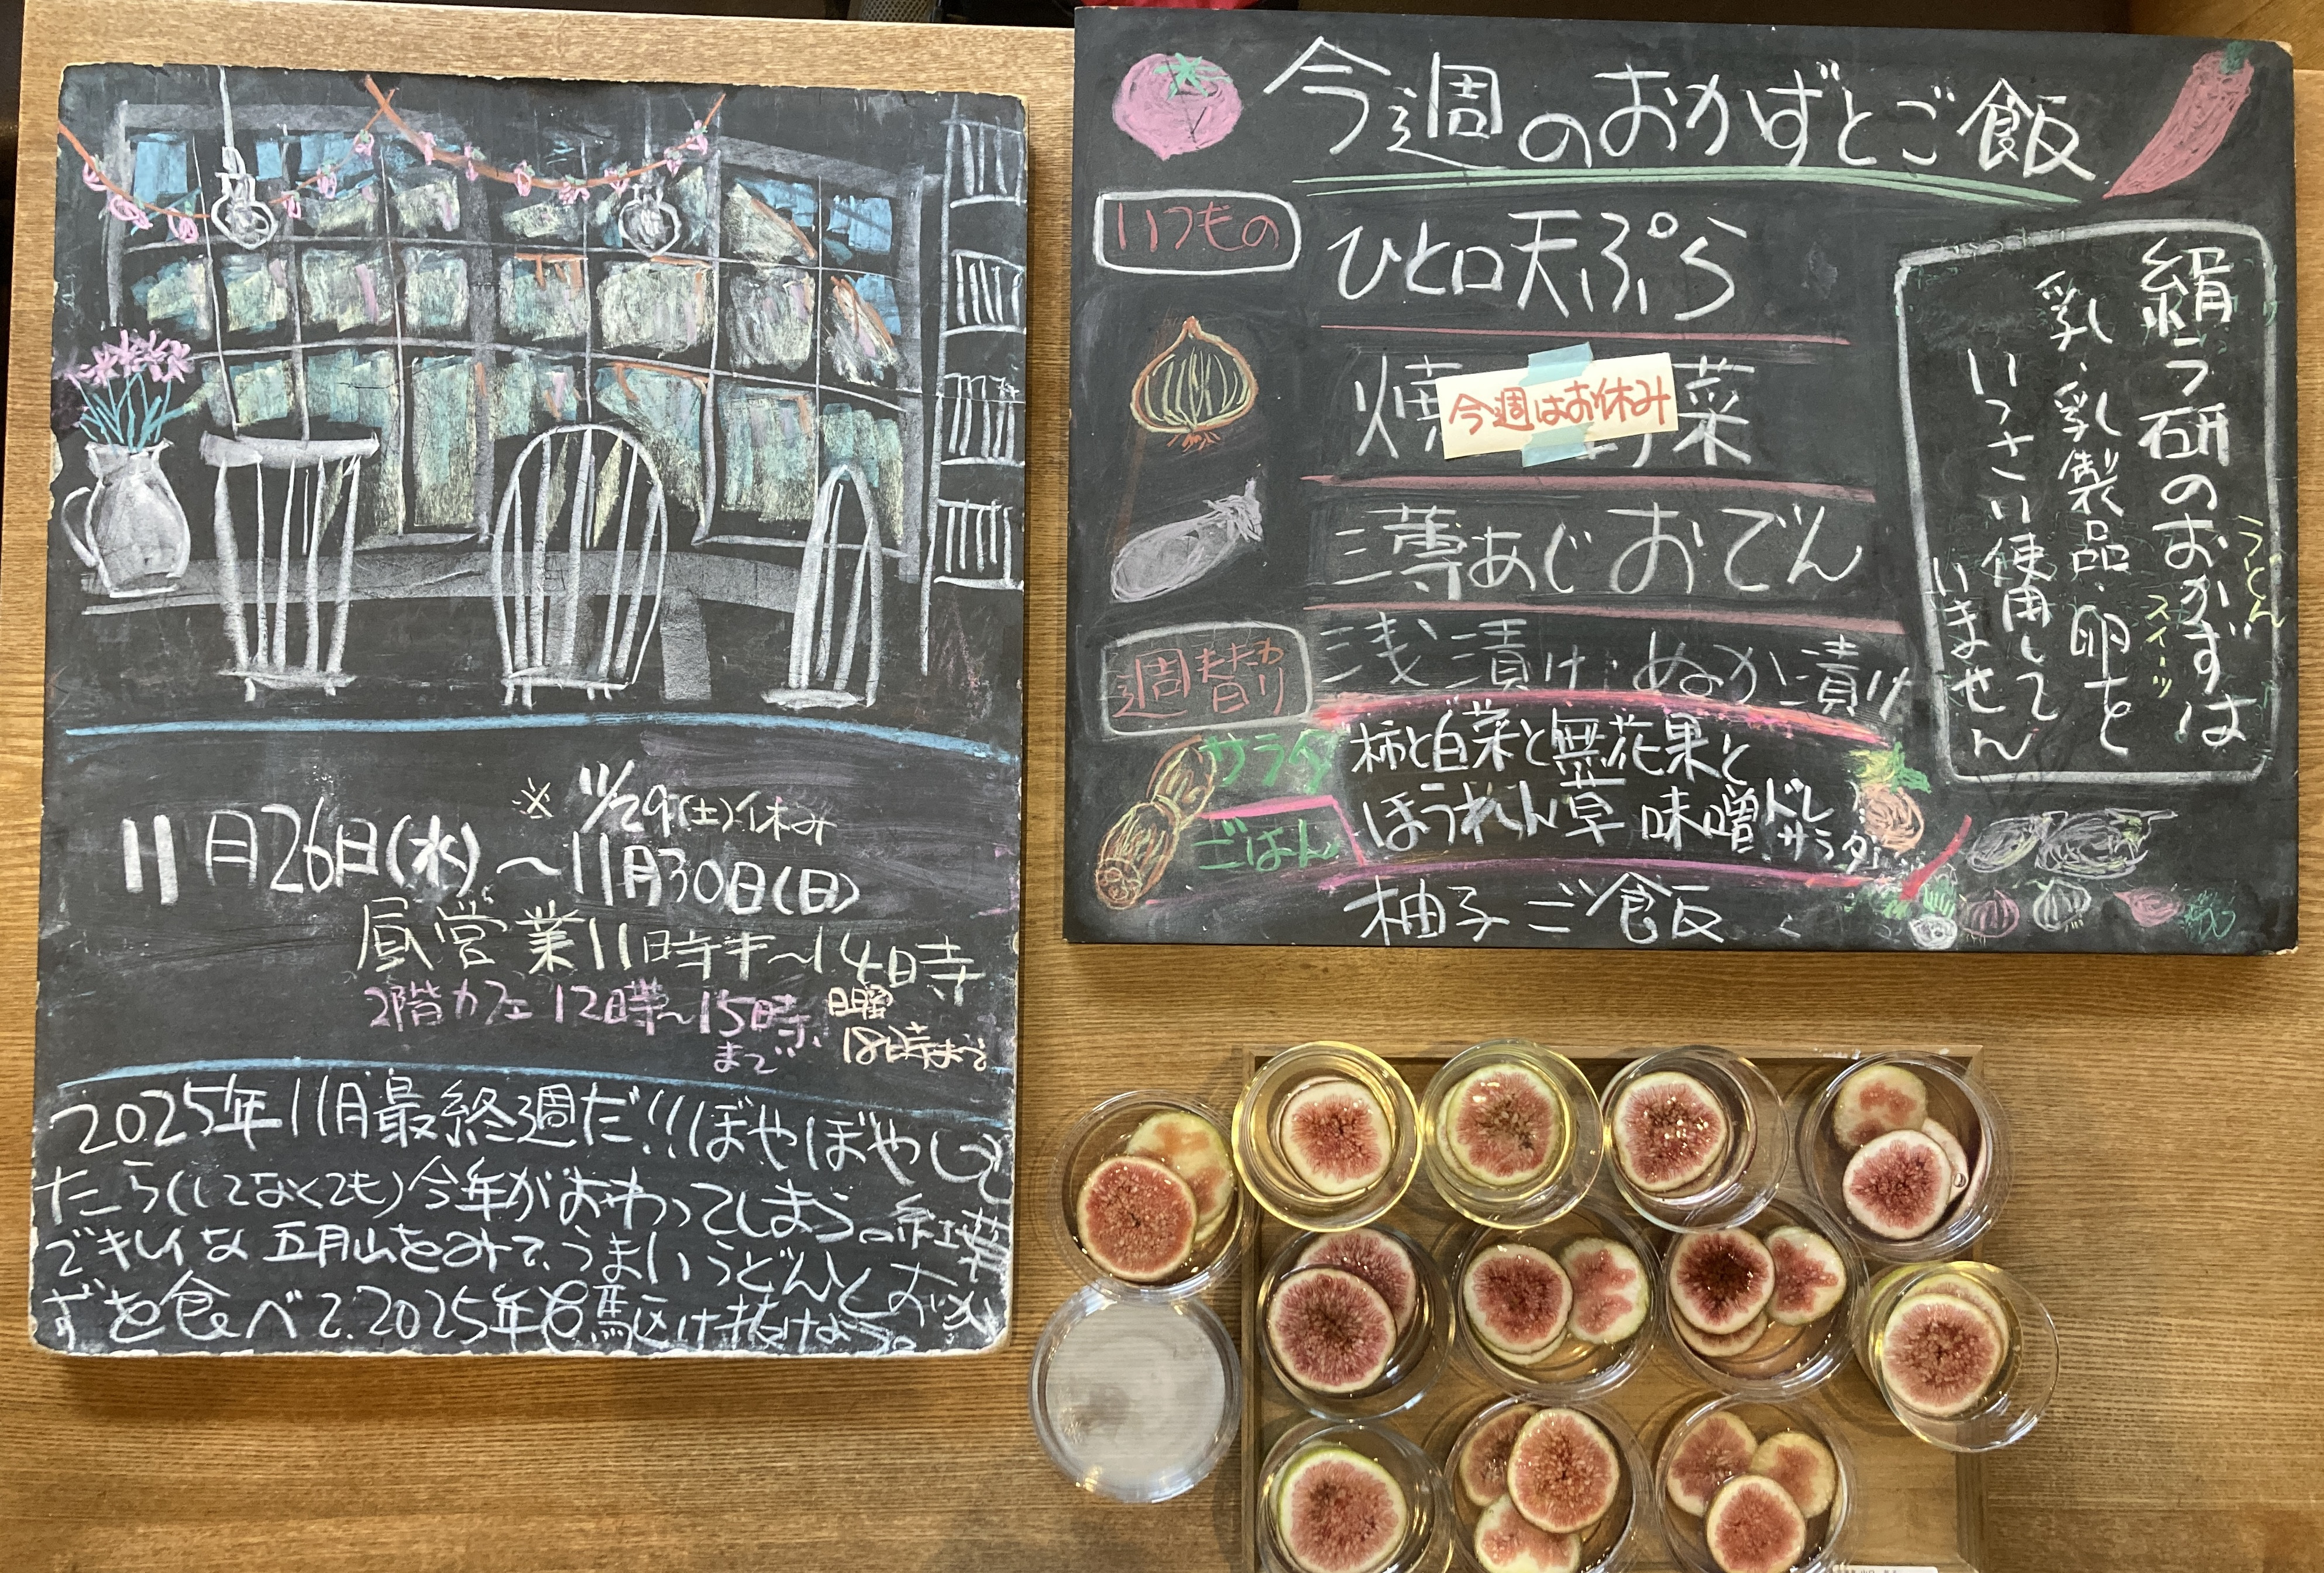 ※11/29(土)休み
11月26日(水)〜11月30日(日)
昼営業11時半〜14時
2階カフェ12時〜15時まで
日曜18時まで
2025年11月最終週だ!!ぼやぼやして
たら(してなくても)今年がおわってしまう。紅葉
でキレイな五月山をみて、うまいうどんとおか
ずを食べて、2025年も駆け抜けよう。
今週のおかずとご飯
いつもの
ひと口天ぷら
焼 菜
今週はお休み
薄あじおでん
浅漬け・ぬか漬け
週替わり
サラダ
柿と白菜と無花果と
ほうれん草 味噌ドレサラダ
ごはん
柚子ご飯
絹ラ研のおかずは
うどん
スイーツ
乳・乳製品・卵を
いっさい使用して
いません